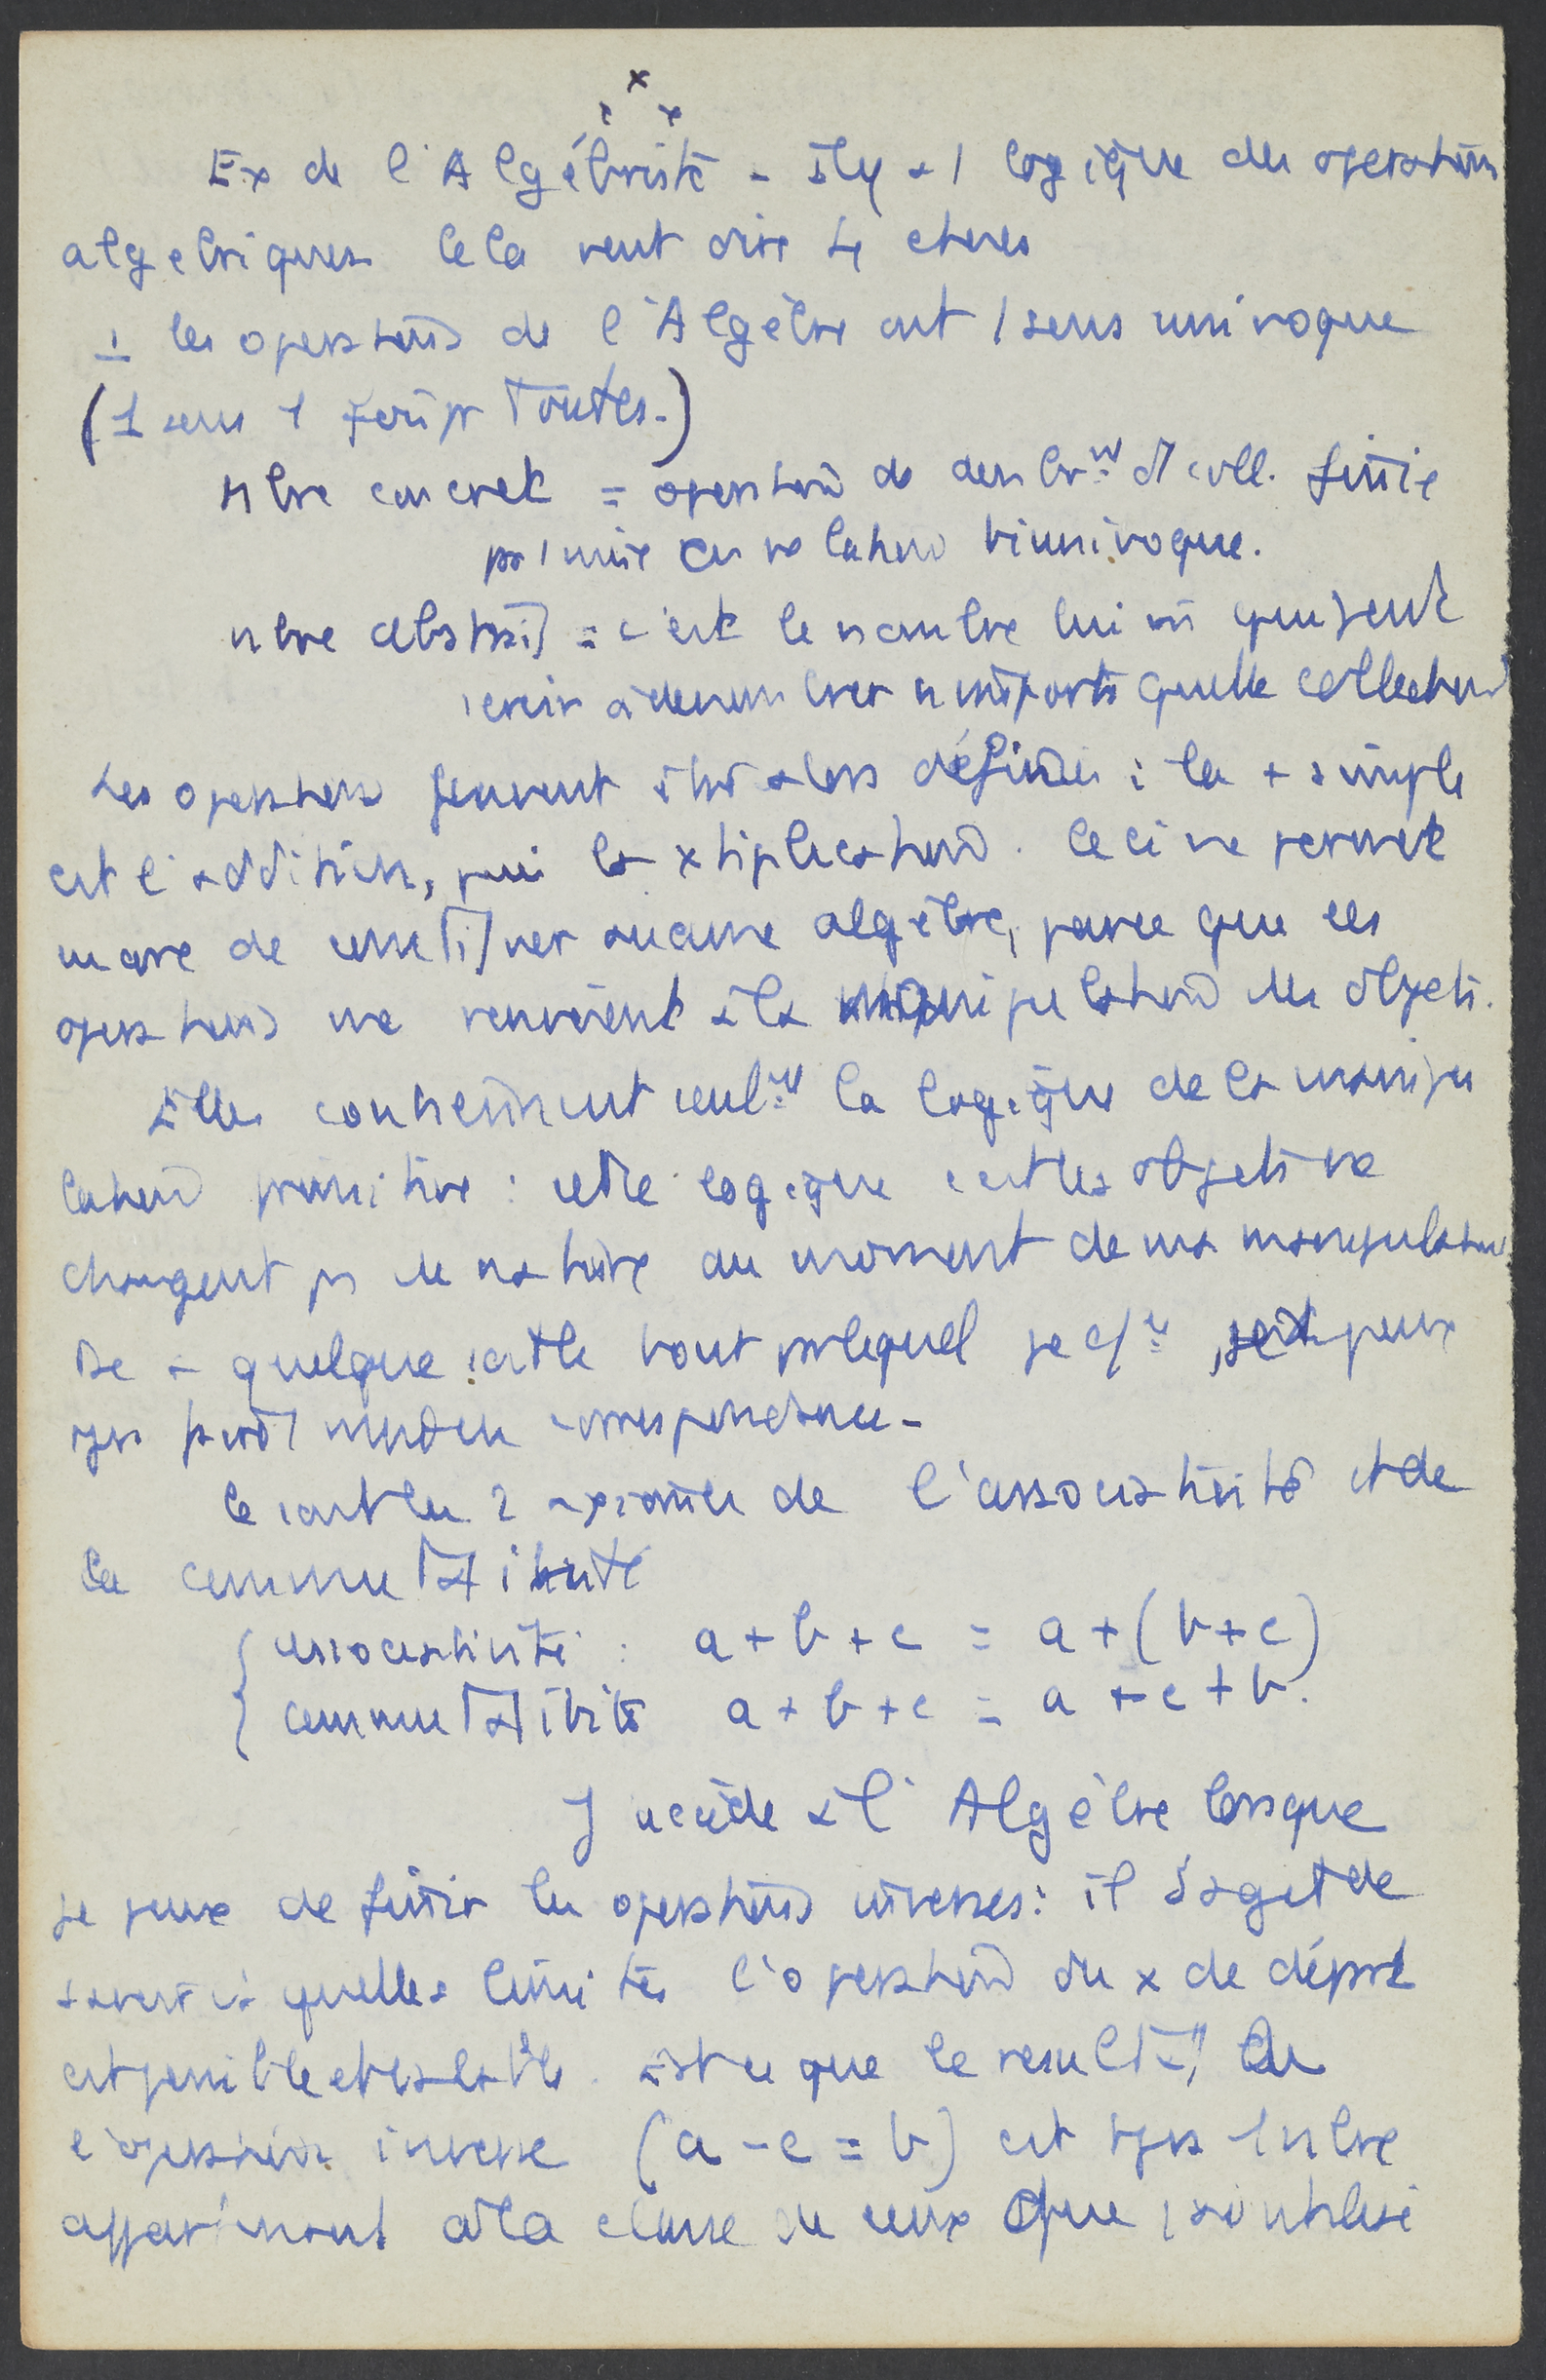 x x x
Ex de l'Algébriste - Il y a 1 logique des operations
algebriques Cela veut dire 4 choses
1 les operations de l'Algèbre ont 1 sens univoque
(1 sens 1 fois pr toutes.)
Nbre concret = operation de d'1 coll. finie
mise en relation biunivoque.
nbre abstrait = c'est le nombre lui m̄ qui peut
servir à denombrer n'importe quelle collection
Les operations peuvent être alors définies : la + simple
est l'addition, puis la xtiplication. Ceci ne permet
encore de constituer aucune algèbre, parce que ces
operations ne renvoient à la manipulation des objets.
Elles contiennent seulnt la logique de la manipu
lation primitive : cette logique c'est les objets ne
changent ps de nature au moment de ma manipulation
De + quelque soit le bout par lequel je cce, je peux
tjrs mettre en correspondance -
Ce sont les 2 axiomes de l'associativité et de
la commutativité
{ associativité : a + b + c = a + (b + c)
{ commutativité a + b + c = a + c + b.
J'accède à l'Algèbre lorsque
je peux definir les operations inverses : il s'agit de
savoir à quelles limites l'operation du x de départ
est possible et valable. Est ce que le resultat de
l'operation inverse (a - c = b) est tjrs 1 nbre
appartenant à la classe de ceux que j'ai utilisé